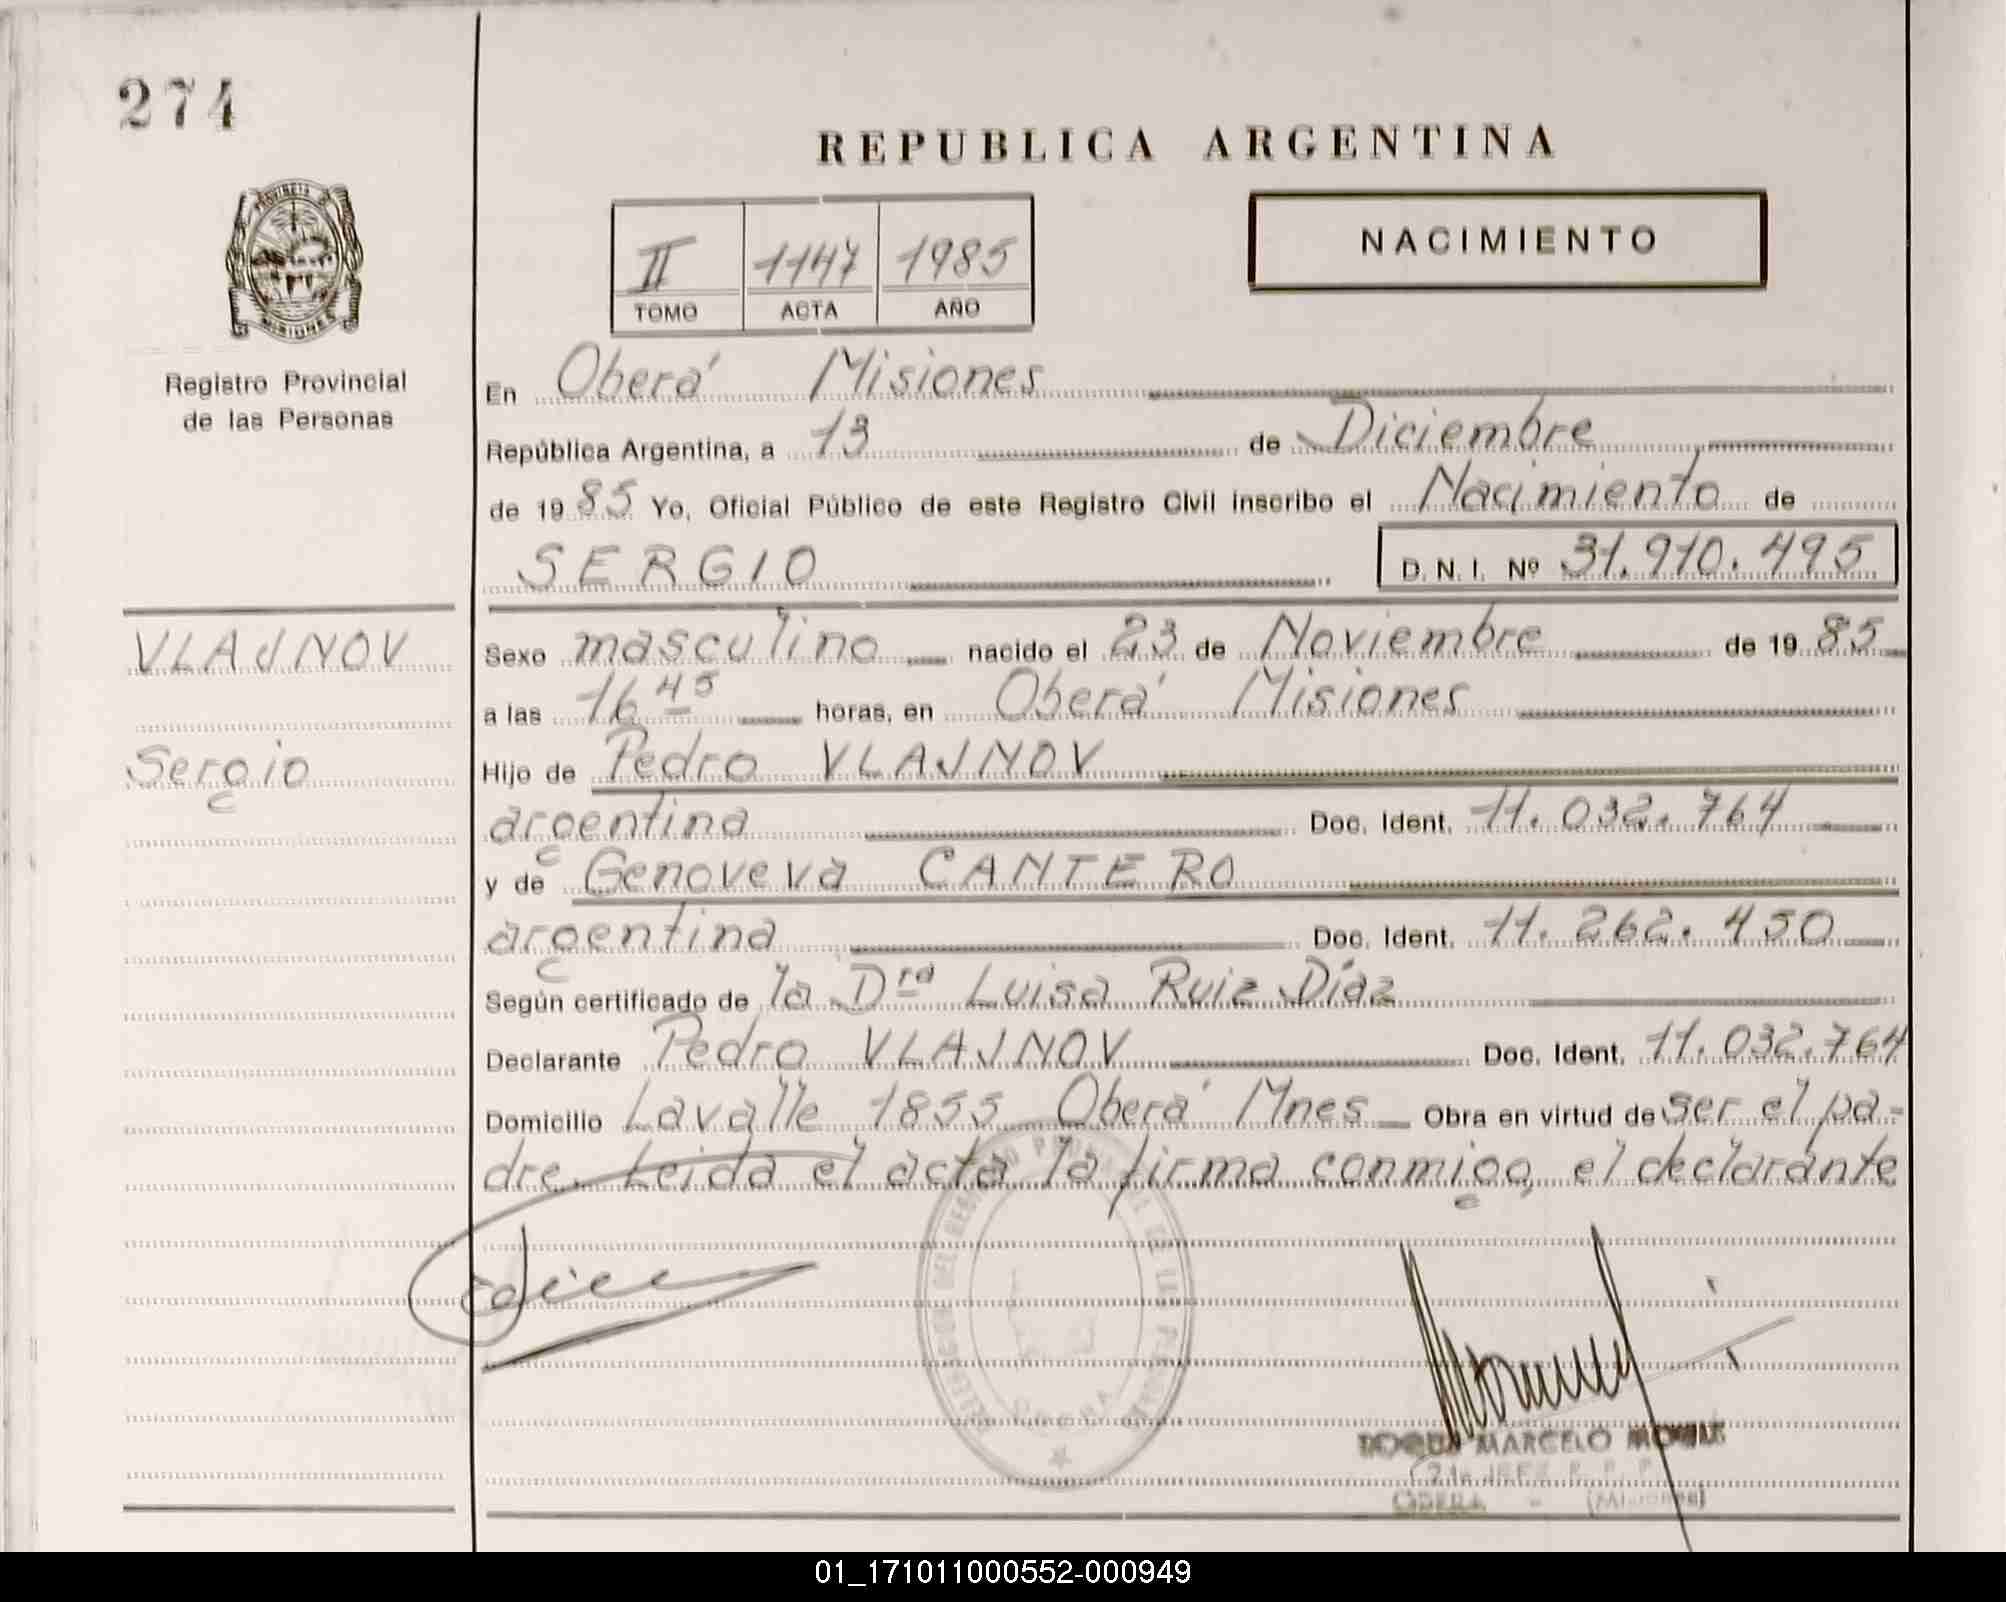 274
REPUBLICA ARGENTINA
PROVINCIA DE
MISIONES
Registro Provincial
de las Personas
II 1147 1985
TOMO ACTA AÑO
NACIMIENTO
En Oberá Misiones
República Argentina, a 13 de Diciembre
de 1985 Yo, Oficial Público de este Registro Civil inscribo el Nacimiento de
SERGIO D.N.I. Nº 31.910.495
VLAJNOV
Sergio
Sexo masculino nacido el 23 de Noviembre de 1985
a las 16 45 horas, en Oberá Misiones
Hijo de Pedro VLAJNOV
argentina Doc. Ident. 11.032.764
y de Genoveva CANTERO
argentina Doc. Ident. 11.262.450
Según certificado de la Dra Luisa Ruiz Díaz
Declarante Pedro VLAJNOV Doc. Ident. 11.032.764
Domicilio Lavalle 1855 Oberá Mnes Obra en virtud de ser el pa-
dre. Leida el acta la firma conmigo, el declarante
ROQUE MARCELO
JEFE R. P. P.
OBERA - (Misiones)
01_171011000552-000949